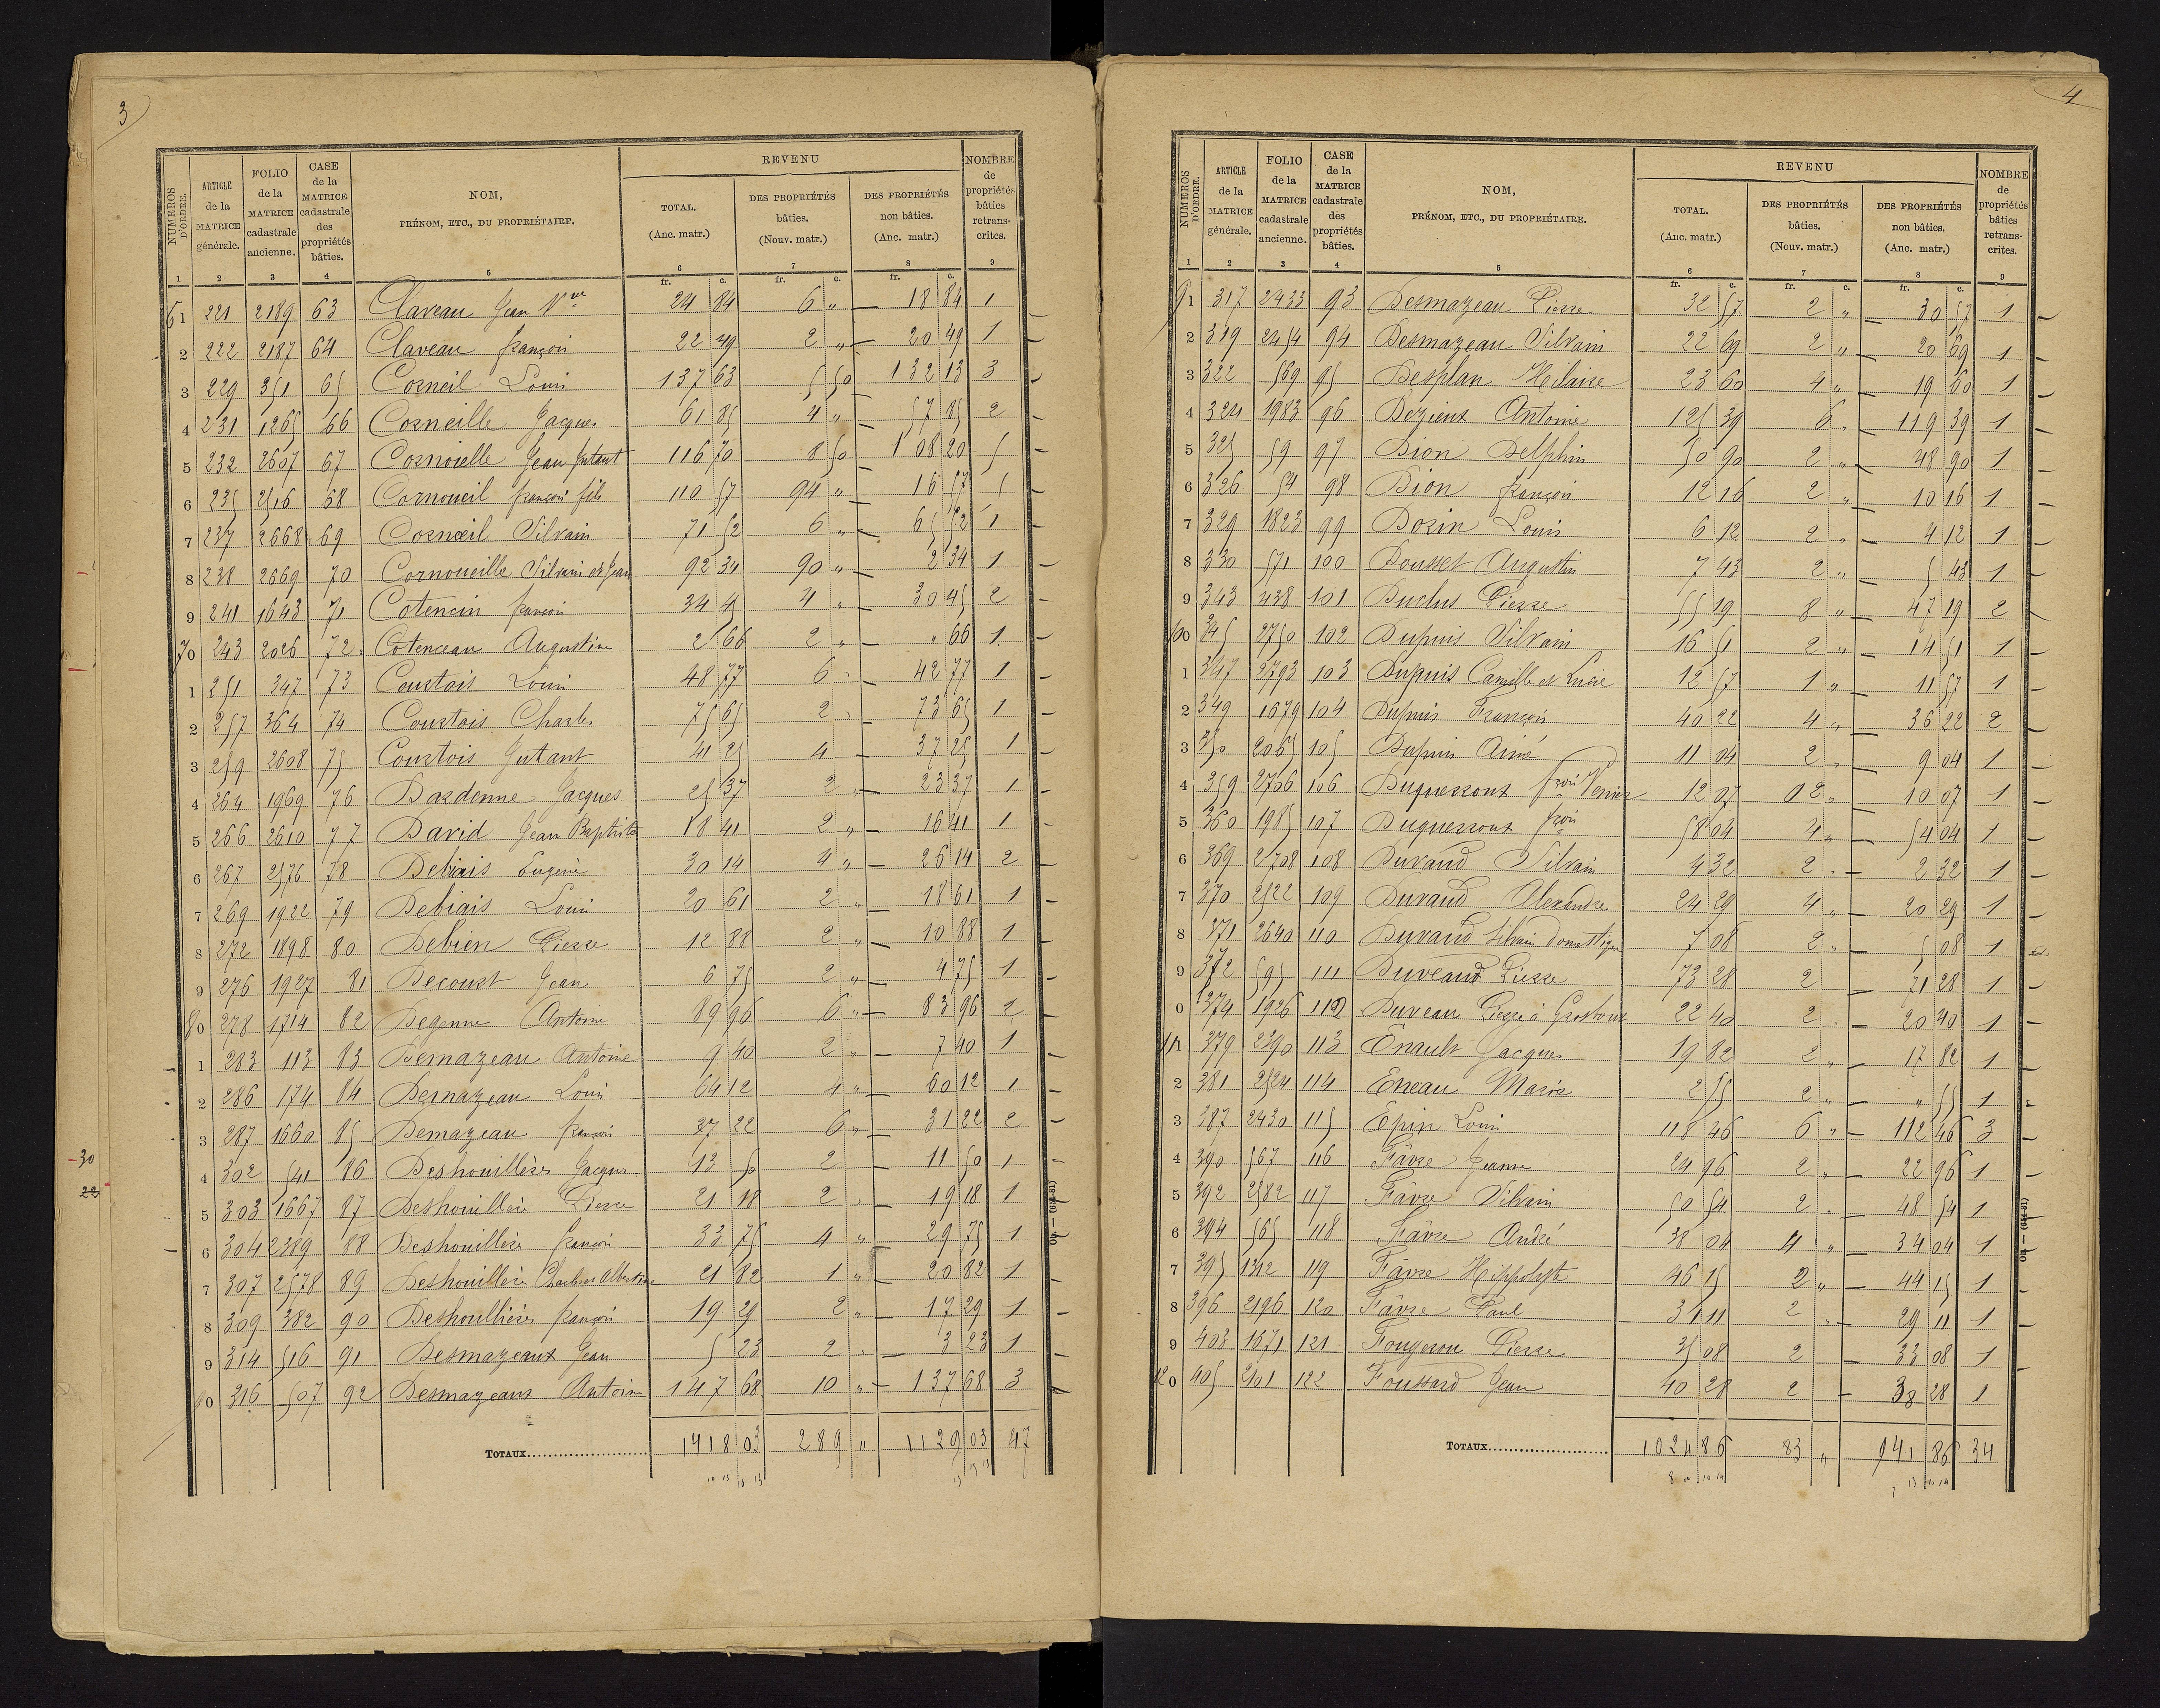 3
NUMÉROS D'ORDRE. | ARTICLE de la MATRICE générale. | FOLIO de la MATRICE cadastrale ancienne. | CASE de la MATRICE cadastrale des propriétés bâties. | NOM, PRÉNOM, ETC., DU PROPRIÉTAIRE. | REVENU | NOMBRE de propriétés bâties retranscrites.
TOTAL. (Anc. matr.) | DES PROPRIÉTÉS bâties. (Nouv. matr.) | DES PROPRIÉTÉS non bâties. (Anc. matr.)
1 2 3 4 5 6 7 8 9
fr. c. fr. c. fr. c.
61 221 2189 63 Claveau Jean Vve 24 84 6 " 18 84 1
2 222 2187 64 Claveau françois 22 49 2 " 20 49 1
3 229 351 65 Corneil Louis 137 63 5 50 132 13 3
4 231 1265 66 Corneille Jacques 61 85 4 " 57 85 2
5 232 2607 67 Cornoielle Jean Jutant 116 70 8 50 108 20 5
6 235 2516 68 Cornoueil françois fils 110 57 94 " 16 57 5
7 237 2668 69 Cornoeil Silvain 71 52 6 " 65 52 1
8 238 2669 70 Cornoueille Silvain et Jean 92 34 90 " 2 34 1
9 241 1643 71 Cotencin françois 34 45 4 " 30 45 2
70 243 2026 72 Cotenceau Augustine 2 66 2 " " 66 1
1 251 347 73 Courtois Louis 48 77 6 " 42 77 1
2 257 364 74 Courtois Charles 75 65 2 " 73 65 1
3 259 2608 75 Courtois Jutant 41 25 4 37 25 1
4 264 1969 76 Dardenne Jacques 25 37 2 " 23 37 1
5 266 2610 77 David Jean Baptiste 18 41 2 " 16 41 1
6 267 2576 78 Debiais Eugène 30 14 4 " 26 14 2
7 269 1922 79 Debiais Louis 20 61 2 " 18 61 1
8 272 1898 80 Debien Pierre 12 88 2 " 10 88 1
9 276 1927 81 Decourt Jean 6 75 2 " 4 75 1
80 278 1714 82 Degenne Antoine 89 96 6 " 83 96 2
1 283 113 83 Demazeau Antoine 9 40 2 " 7 40 1
2 286 174 84 Demazeau Louis 64 12 4 " 60 12 1
3 287 1660 85 Demazeau françois 37 22 6 " 31 22 2
-30
4 302 541 86 Deshouillères Jacques 13 50 2 11 50 1
22
5 303 1667 87 Deshouillère Pierre 21 18 2 " 19 18 1
6 304 2389 88 Deshouillère françois 33 75 4 " 29 75 1
7 307 2578 89 Deshouillère Charles et Albertine 21 82 1 " 20 82 1
8 309 382 90 Deshoullières françois 19 29 2 " 17 29 1
9 314 516 91 Desmazeaux Jean 5 23 2 " 3 23 1
90 316 507 92 Desmazeaux Antoine 147 68 10 " 137 68 3
TOTAUX 1418 03 289 " 1129 03 47
4
NUMÉROS D'ORDRE. | ARTICLE de la MATRICE générale. | FOLIO de la MATRICE cadastrale ancienne. | CASE de la MATRICE cadastrale des propriétés bâties. | NOM, PRÉNOM, ETC., DU PROPRIÉTAIRE. | REVENU | NOMBRE de propriétés bâties retranscrites.
TOTAL. (Anc. matr.) | DES PROPRIÉTÉS bâties. (Nouv. matr.) | DES PROPRIÉTÉS non bâties. (Anc. matr.)
1 2 3 4 5 6 7 8 9
fr. c. fr. c. fr. c.
91 317 2433 93 Desmazeau Pierre 32 57 2 " 30 57 1
2 319 2454 94 Desmazeau Silvain 22 69 2 " 20 69 1
3 322 569 95 Desplan Hilaire 23 60 4 " 19 60 1
4 324 1983 96 Dezieux Antoine 125 39 6 " 119 39 1
5 325 59 97 Dion Delphin 50 90 2 " 48 90 1
6 326 54 98 Dion françois 12 16 2 " 10 16 1
7 329 1823 99 Dorin Louis 6 12 2 " 4 12 1
8 330 571 100 Dousset Augustin 7 43 2 " 5 43 1
9 343 438 101 Duclus Pierre 55 19 8 " 47 19 2
100 345 2750 102 Dupuis Silvain 16 51 2 " 14 51 1
1 347 2793 103 Dupuis Camille et Lucie 12 57 1 " 11 57 1
2 349 1679 104 Dupuis François 40 22 4 " 36 22 2
3 350 2065 105 Dupuis Aimé 11 04 2 " 9 04 1
4 359 2706 106 Duquerroux frois Venier 12 07 02 " 10 07 1
5 360 1985 107 Duquerroux frois 58 04 4 " 54 04 1
6 369 2708 108 Durand Silvain 4 32 2 " 2 32 1
7 370 2522 109 Durand Alexandre 24 29 4 " 20 29 1
8 371 2640 110 Durand Silvain domestique 7 08 2 " 5 08 1
9 372 595 111 Duveaud Pierre 73 28 2 71 28 1
0 374 1926 112 Duveau Pierre à 22 40 2 " 20 40 1
111 379 2390 113 Enault Jacques 19 82 2 " 17 82 1
2 381 2524 114 Eneau Marie 2 55 2 " " 55 1
3 387 2430 115 Epin Louis 118 46 6 " 112 46 3
4 390 567 116 Fâvre Jeanne 24 96 2 " 22 96 1
5 392 2582 117 Fâvre Silvain 50 54 2 " 48 54 1
6 394 565 118 Fâvre André 38 04 4 " 34 04 1
7 395 1312 119 Fâvre Hippolyte 46 15 2 " 44 15 1
8 396 2196 120 Fâvre Paul 31 11 2 " 29 11 1
9 403 1671 121 Fougerou Pierre 35 08 2 33 08 1
120 405 2101 122 Foussard Jean 40 28 2 38 28 1
TOTAUX 1024 86 83 " 941 86 34